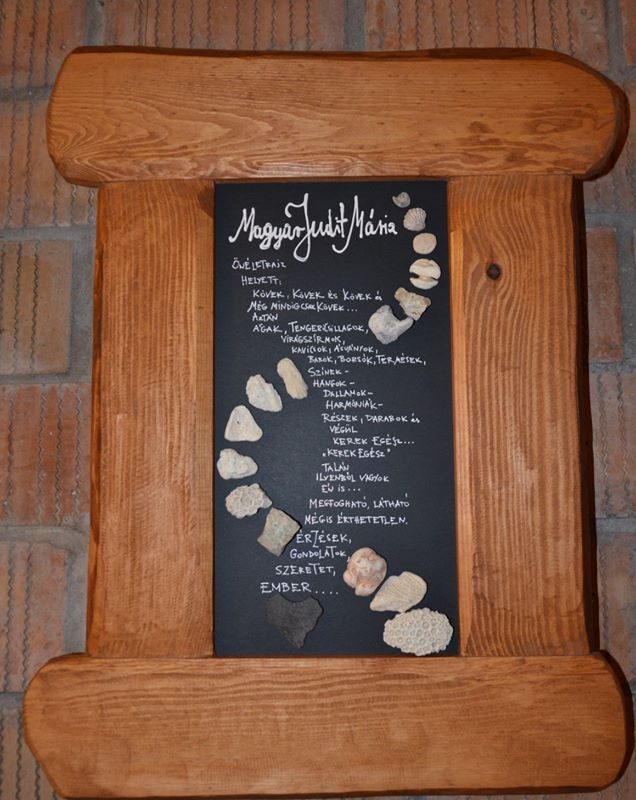 Magyar Judit Mária
ÖNÉLETRAJZ
HELYETT:
KÖVEK, KÖVEK ÉS KÖVEK ÉS
MÉG MINDIG CSAK KÖVEK...
AZTÁN
ÁGAK, TENGERICSILLAGOK,
VIRÁGSZIRMOK,
KAVICSOK, ÁSVÁNYOK,
BABOK, BORSÓK, TERMÉSEK,
SZÍNEK-
HANGOK-
DALLAMOK-
HARMÓNIÁK-
RÉSZEK, DARABOK ÉS
VÉGÜL
KEREK EGÉSZ...
„KEREK EGÉSZ"
TALÁN
ILYENBŐL VAGYOK
ÉN IS...
MEGFOGHATÓ, LÁTHATÓ
MÉGIS ÉRTHETETLEN.
ÉRZÉSEK,
GONDOLATOK,
SZERETET,
EMBER....